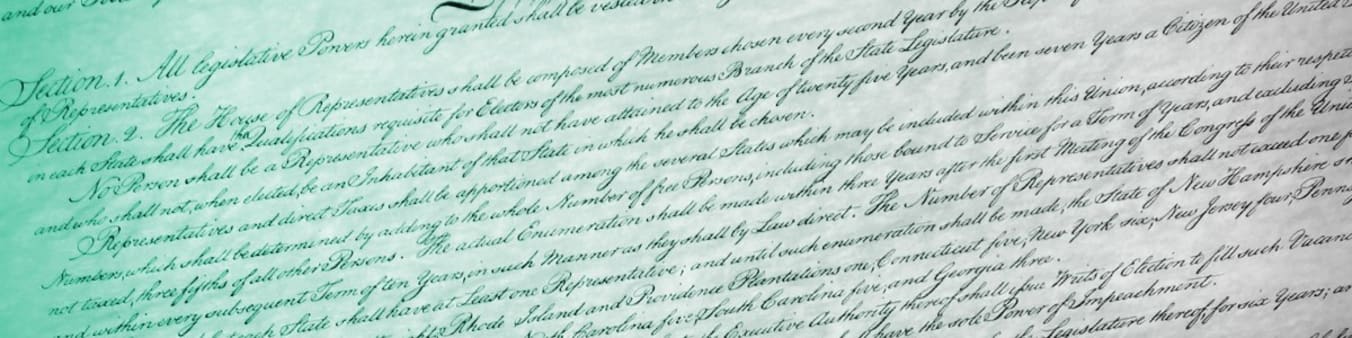 and our
Section. 1. All legislative Powers herein granted shall be vested in
of Representatives.
Section. 2. The House of Representatives shall be composed of Members chosen every second Year by the
in each State shall have the Qualifications requisite for Electors of the most numerous Branch of the State Legislature.
No Person shall be a Representative who shall not have attained to the Age of twenty five Years, and been seven Years a Citizen of the United
and who shall not, when elected, be an Inhabitant of that State in which he shall be chosen.
Representatives and direct Taxes shall be apportioned among the several States which may be included within this Union, according to their respect
Numbers, which shall be determined by adding to the whole Number of free Persons, including those bound to Service for a Term of Years, and excluding
not taxed, three fifths of all other Persons. The actual Enumeration shall be made within three Years after the first Meeting of the Congress of the Uni
and within every subsequent Term of ten Years, in such Manner as they shall by Law direct. The Number of Representatives shall not exceed one f
each State shall have at Least one Representative; and until such enumeration shall be made, the State of New Hampshire
Rhode Island and Providence Plantations one, Connecticut five, New York six, New Jersey four, Penns
Carolina five, South Carolina five, and Georgia three.
the Executive Authority thereof shall issue Writs of Election to fill such Vacanc
have the sole Power of Impeachment.
Legislature thereof, for six Years; an